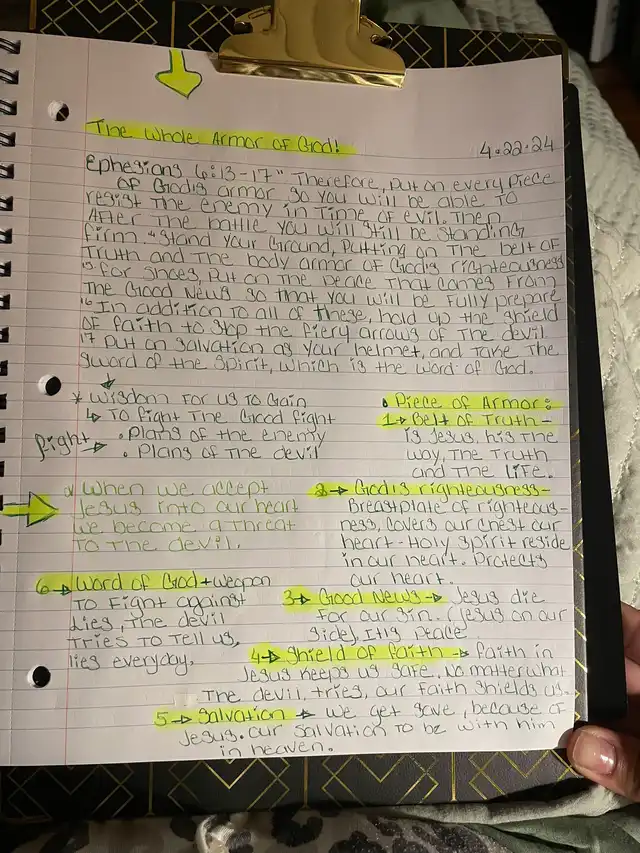 The Whole Armor of God!
4.22.24
Ephesians 6:13-17 "Therefore, put on every piece
of God's armor so you will be able to
resist the enemy in time of evil. Then
after the battle you will still be standing
firm. 14 Stand your ground, putting on the belt of
truth and the body armor of God's righteousness
15 For shoes, put on the peace that comes from
the Good News so that you will be fully prepare
16 In addition to all of these, hold up the shield
of faith to stop the fiery arrows of the devil
17 put on salvation as your helmet, and take the
sword of the spirit, which is the word of God.
* Wisdom for us to Gain
↳ To fight the Good fight
fight → • Plans of the enemy
• Plans of the devil
When we accept
Jesus into our heart
we become a threat
to the devil.
• Piece of Armor:
1→ Belt of Truth -
is Jesus, his the
way, the truth
and the life.
2→ God's righteousness -
Breastplate of righteous-
ness, covers our chest our
heart - Holy Spirit reside
in our heart. Protects
our heart.
3→ Good News → Jesus die
for our sin. (Jesus on our
side) Its peace
4→ Shield of faith → faith in
Jesus keeps us safe. No matter what
the devil, tries, our faith shields us.
5→ Salvation → we get save, because of
Jesus. Our salvation to be with him
in heaven.
6→ Word of God → weapon
to fight against
lies, the devil
tries to tell us,
lies everyday.